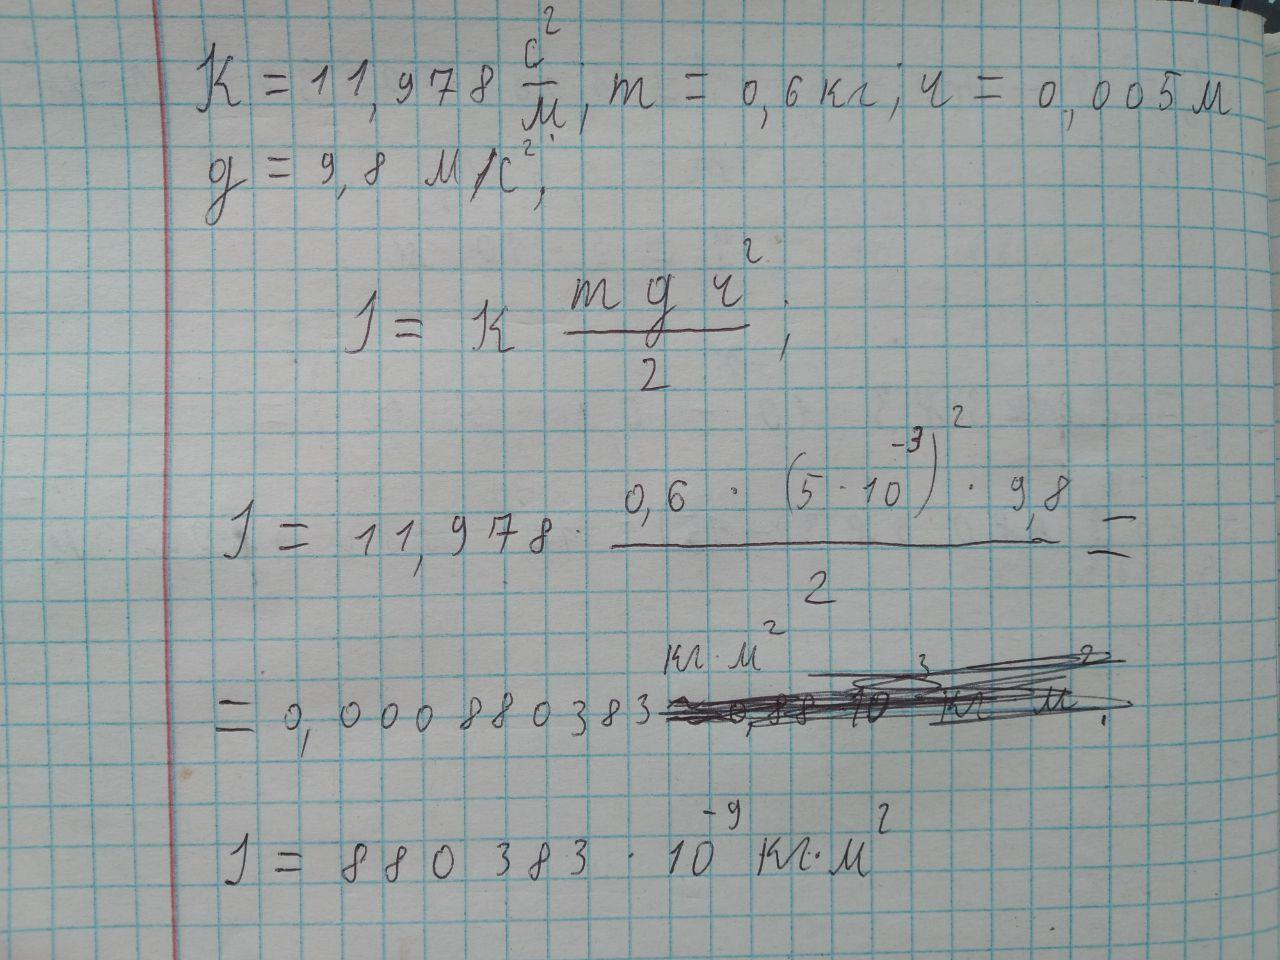 K = 11,978 с²/м, m = 0,6 кг; r = 0,005 м
g = 9,8 м/с²;
J = K (m g r²)/2;
J = 11,978 · (0,6 · (5 · 10⁻³)² · 9,8)/2 =
= 0,000880383 кг·м²
J = 880383 · 10⁻⁹ кг·м²